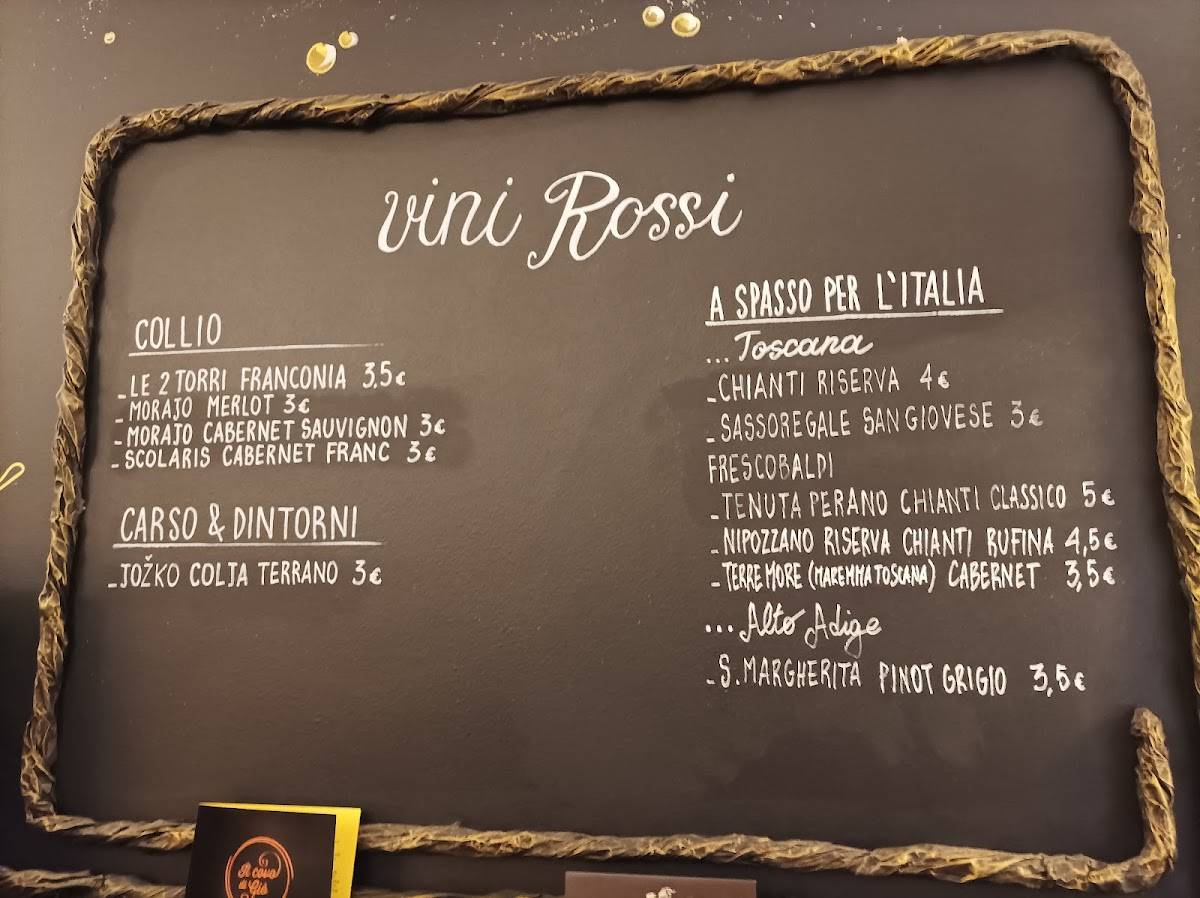 vini Rossi
COLLIO
-LE 2 TORRI FRANCONIA 3,5€
-MORAJO MERLOT 3€
-MORAJO CABERNET SAUVIGNON 3€
-SCOLARIS CABERNET FRANC 3€
CARSO & DINTORNI
-JOŽKO COLJA TERRANO 3€
A SPASSO PER L'ITALIA
...Toscana
-CHIANTI RISERVA 4€
-SASSOREGALE SANGIOVESE 3€
FRESCOBALDI
-TENUTA PERANO CHIANTI CLASSICO 5€
-NIPOZZANO RISERVA CHIANTI RUFINA 4,5€
-TERRE MORE (MAREMMA TOSCANA) CABERNET 3,5€
...Alto Adige
-S. MARGHERITA PINOT GRIGIO 3,5€
Il covo
di Giò